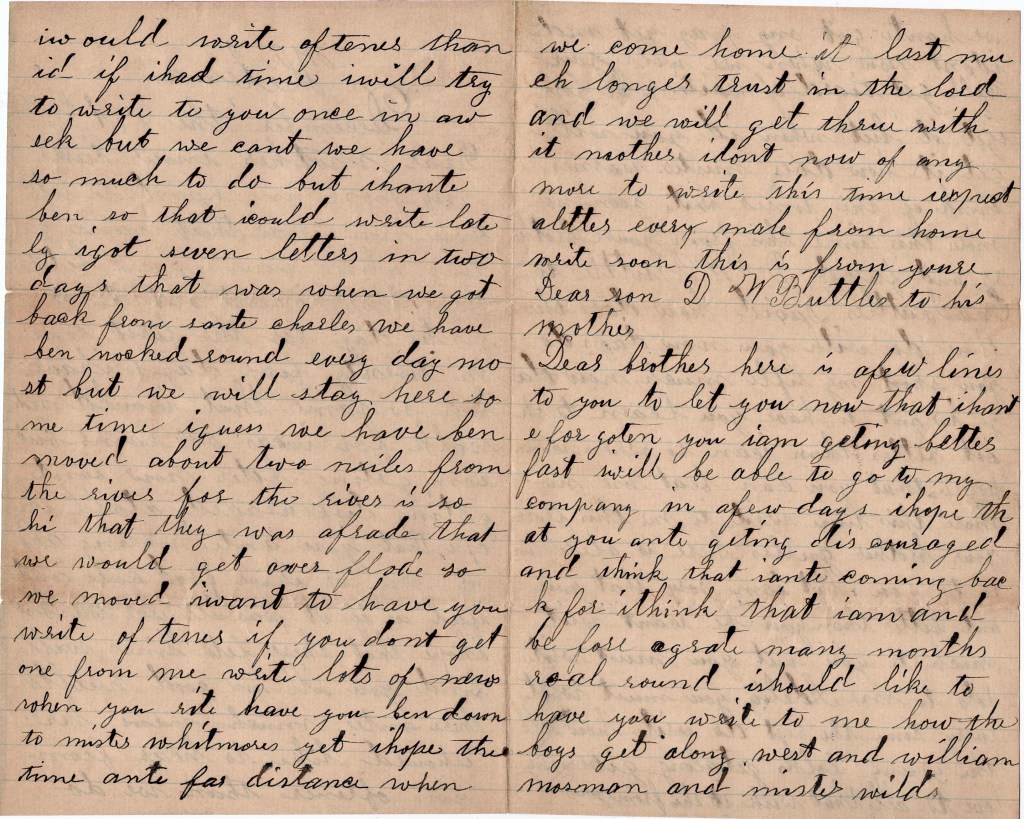 iwould write oftener than
id if ihad time iwill try
to write to you once in aw
eek but we cant we have
so much to do but ihante
ben so that icould write late
ly igot seven letters in two
days that was when we got
back from sante charles we have
ben nocked round every day mo
st but we will stay here so
me time iguess we have ben
moved about two miles from
the river for the river is so
hi that they was afrade that
we would get over flode so
we moved iwant to have you
write of tener if you dont get
one from me write lots of news
when you rite have you ben down
to mister whitmores yet ihope the
time ante far distance when
we come home it last mu
ch longer trust in the lord
and we will get thrue with
it mother idont now of any
more to write this time iexpect
aletter every male from home
write soon this is from youre
Dear son D W Buttler to his
mother
Dear brother here is afew lines
to you to let you now that ihant
e forgoten you iam geting better
fast iwill be able to go to my
company in afew days ihope th
at you ante geting dis couraged
and think that iante coming bac
k for ithink that iam and
be fore agrate many months
roal round ishould like to
have you write to me how the
boys get along west and william
mosman and mister wilds